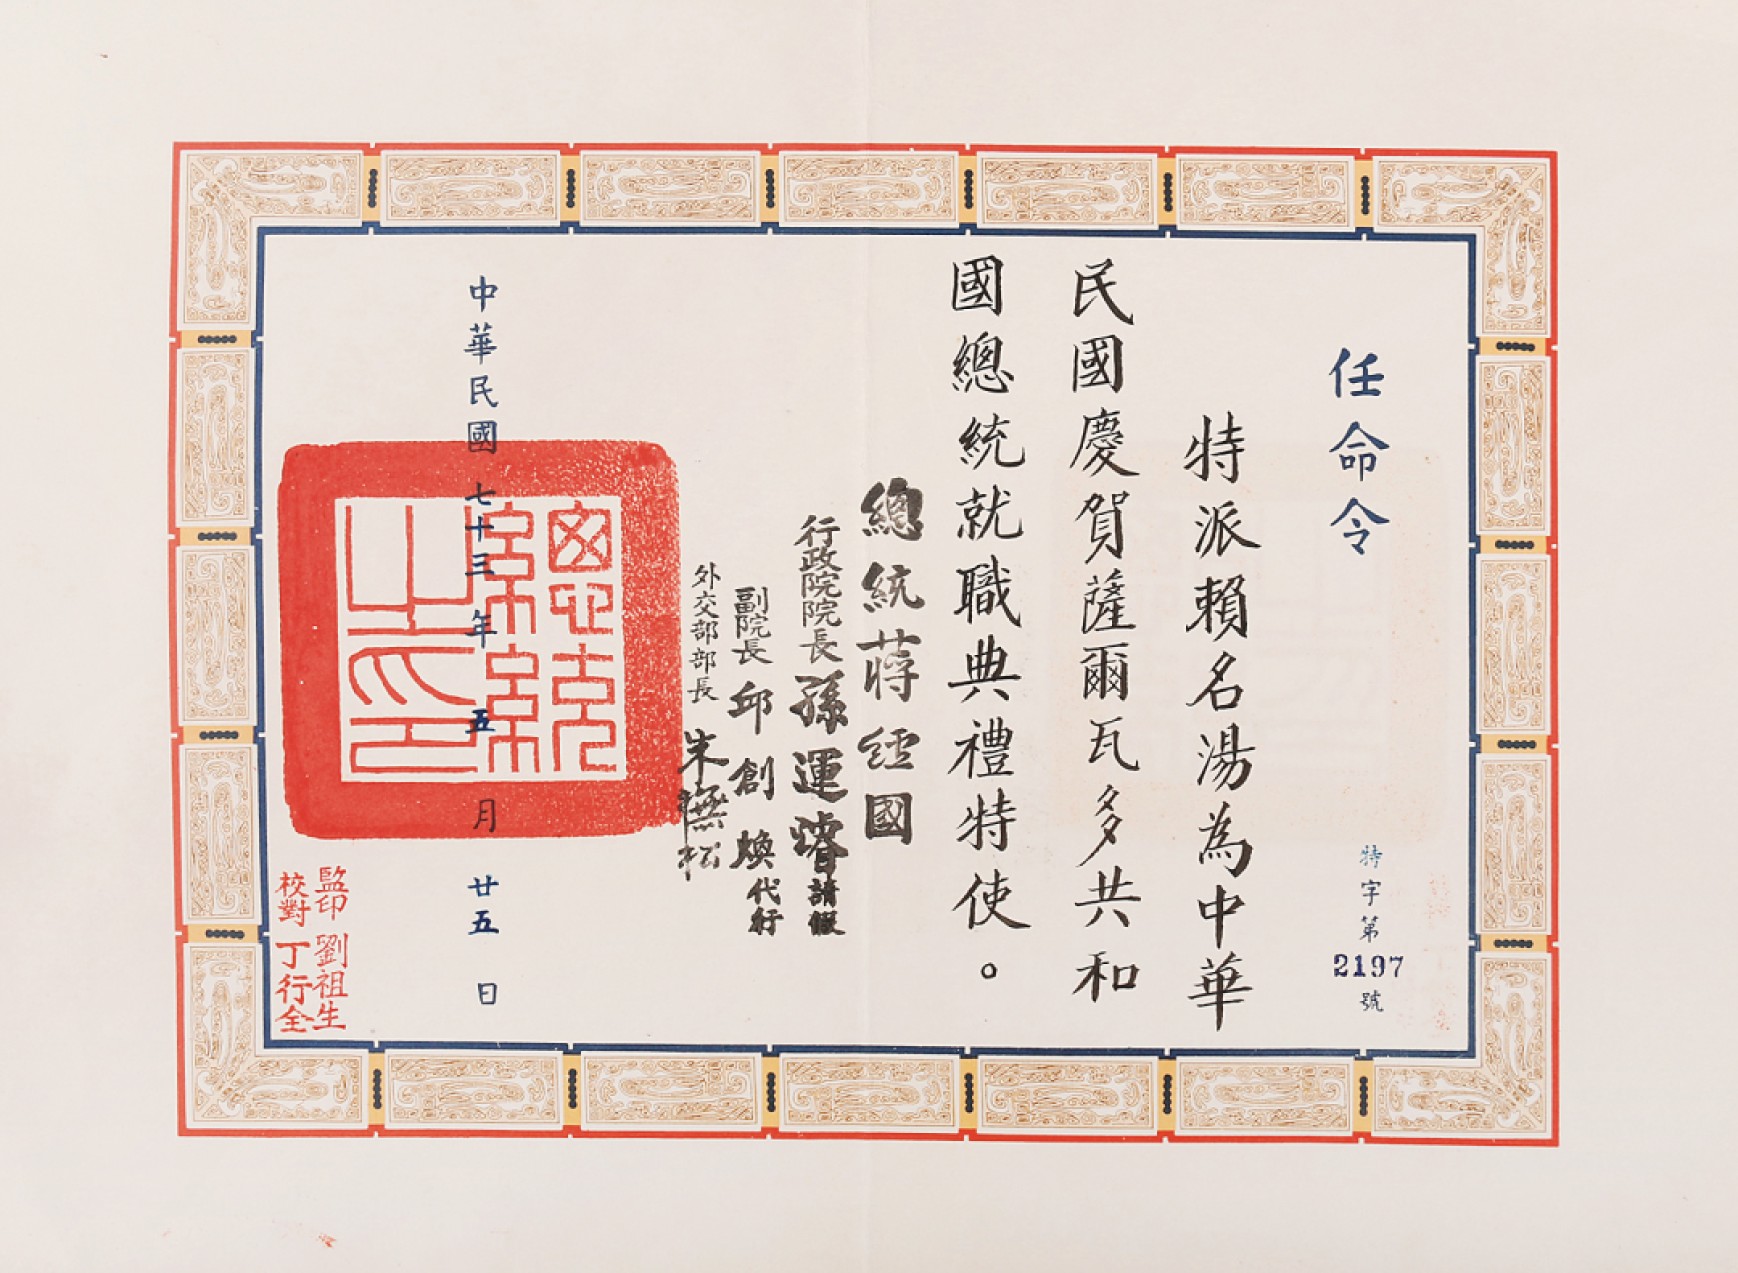 任命令
特字第2197號
特派賴名湯為中華
民國慶賀薩爾瓦多共和
國總統就職典禮特使。
總統蔣經國
行政院院長孫運璿請假
副院長邱創煥代行
外交部部長朱撫松
中華民國七十三年五月廿五日
監印劉祖生
校對丁行全